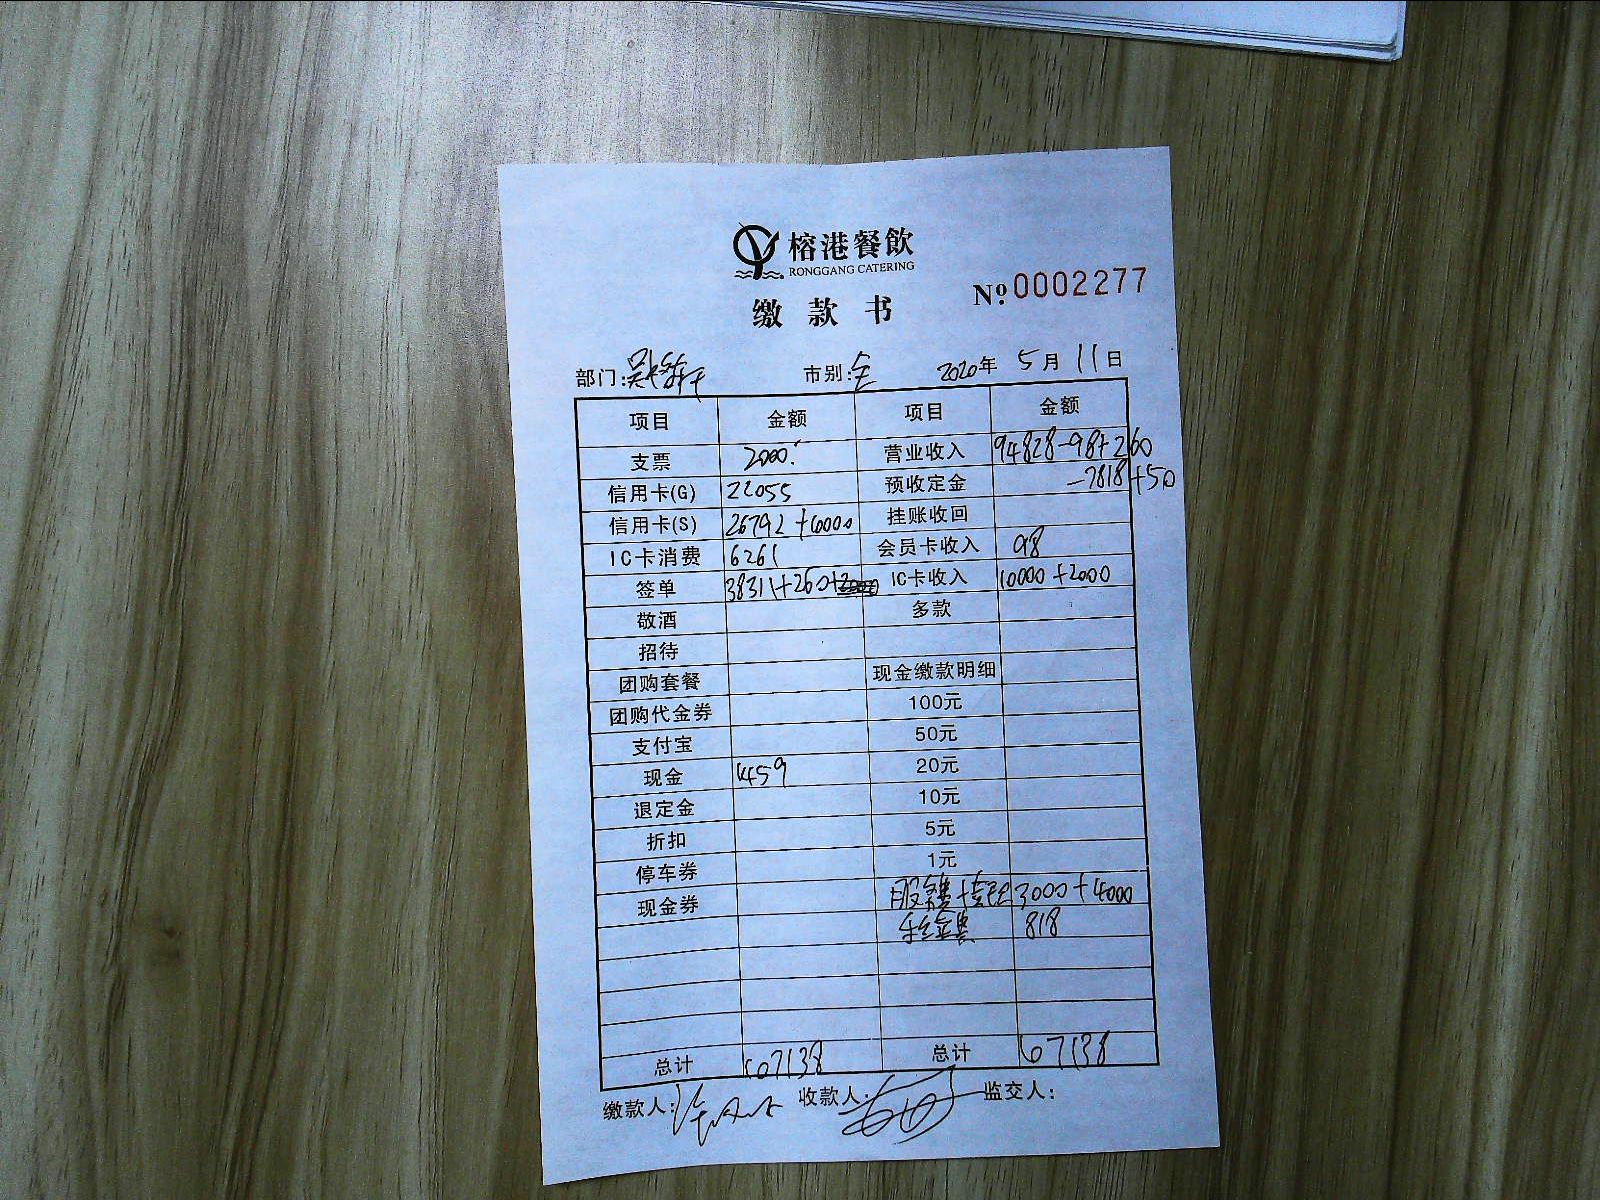 榕港餐飲
RONGGANG CATERING
缴款书 Nº 0002277
部门: 市别:全 2020年 5月 11日
项目 金额 项目 金额
支票 2000. 营业收入 94828-98+260
信用卡(G) 22055 预收定金 -7818+50
信用卡(S) 26792+10000 挂账收回
IC卡消费 6261 会员卡收入 98
签单 38311+260+ IC卡收入 10000+2000
敬酒 多款
招待
团购套餐 现金缴款明细
团购代金券 100元
支付宝 50元
现金 1459 20元
退定金 10元
折扣 5元
停车券 1元
现金券 3000+4000
818
总计 107138 总计 107138
缴款人: 收款人: 监交人: